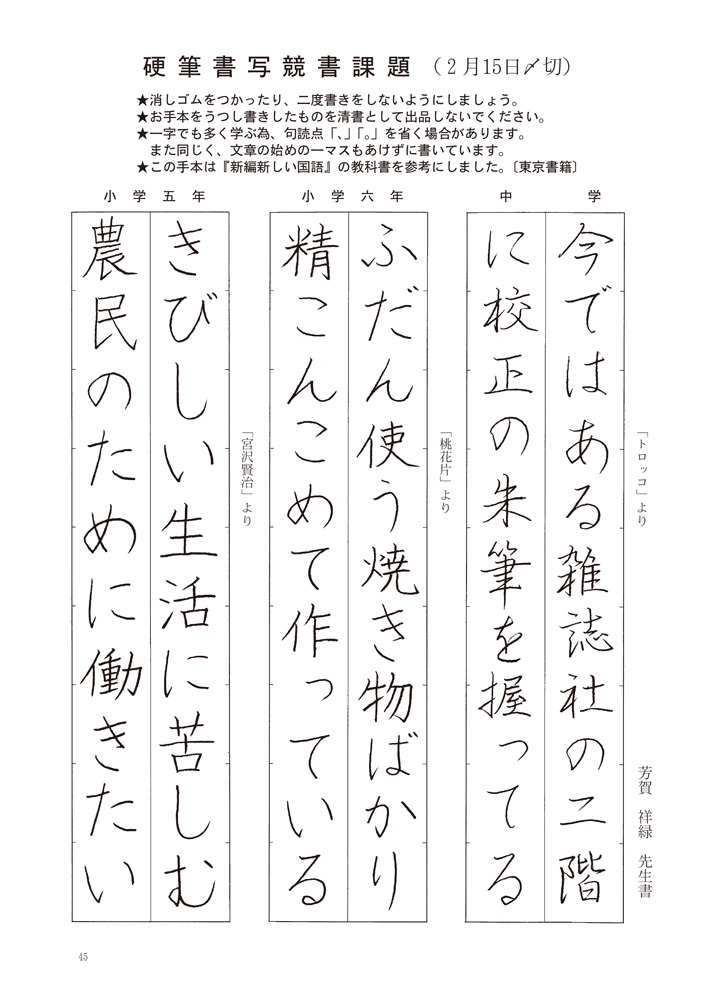 硬筆書写競書課題 （２月15日〆切）
★消しゴムをつかったり、二度書きをしないようにしましょう。
★お手本をうつし書きしたものを清書として出品しないでください。
★一字でも多く学ぶ為、句読点「、」「。」を省く場合があります。
また同じく、文章の始めの一マスもあけずに書いています。
★この手本は『新編新しい国語』の教科書を参考にしました。〔東京書籍〕
中学
「トロッコ」より
芳賀 祥緑 先生書
今ではある雑誌社の二階
に校正の朱筆を握ってる
小学六年
「桃花片」より
ふだん使う焼き物ばかり
精こんこめて作っている
小学五年
「宮沢賢治」より
きびしい生活に苦しむ
農民のために働きたい
45